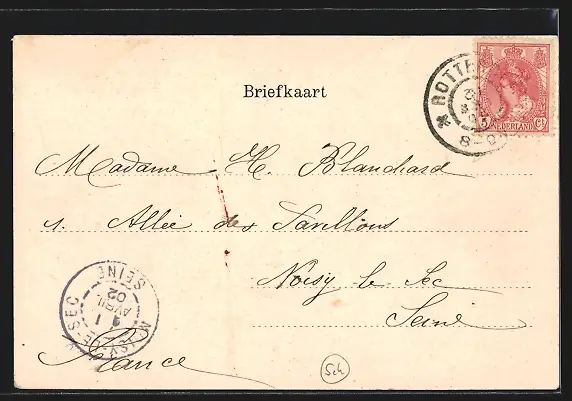 Briefkaart
ROTTE
8-9
5 NEDERLAND Ct
Madame H. Blanchard
1. Allée des Pavillons
Noisy le Sec
Seine
France
NOISY-LE-SEC
SEINE
1
AVRIL
02
Sch